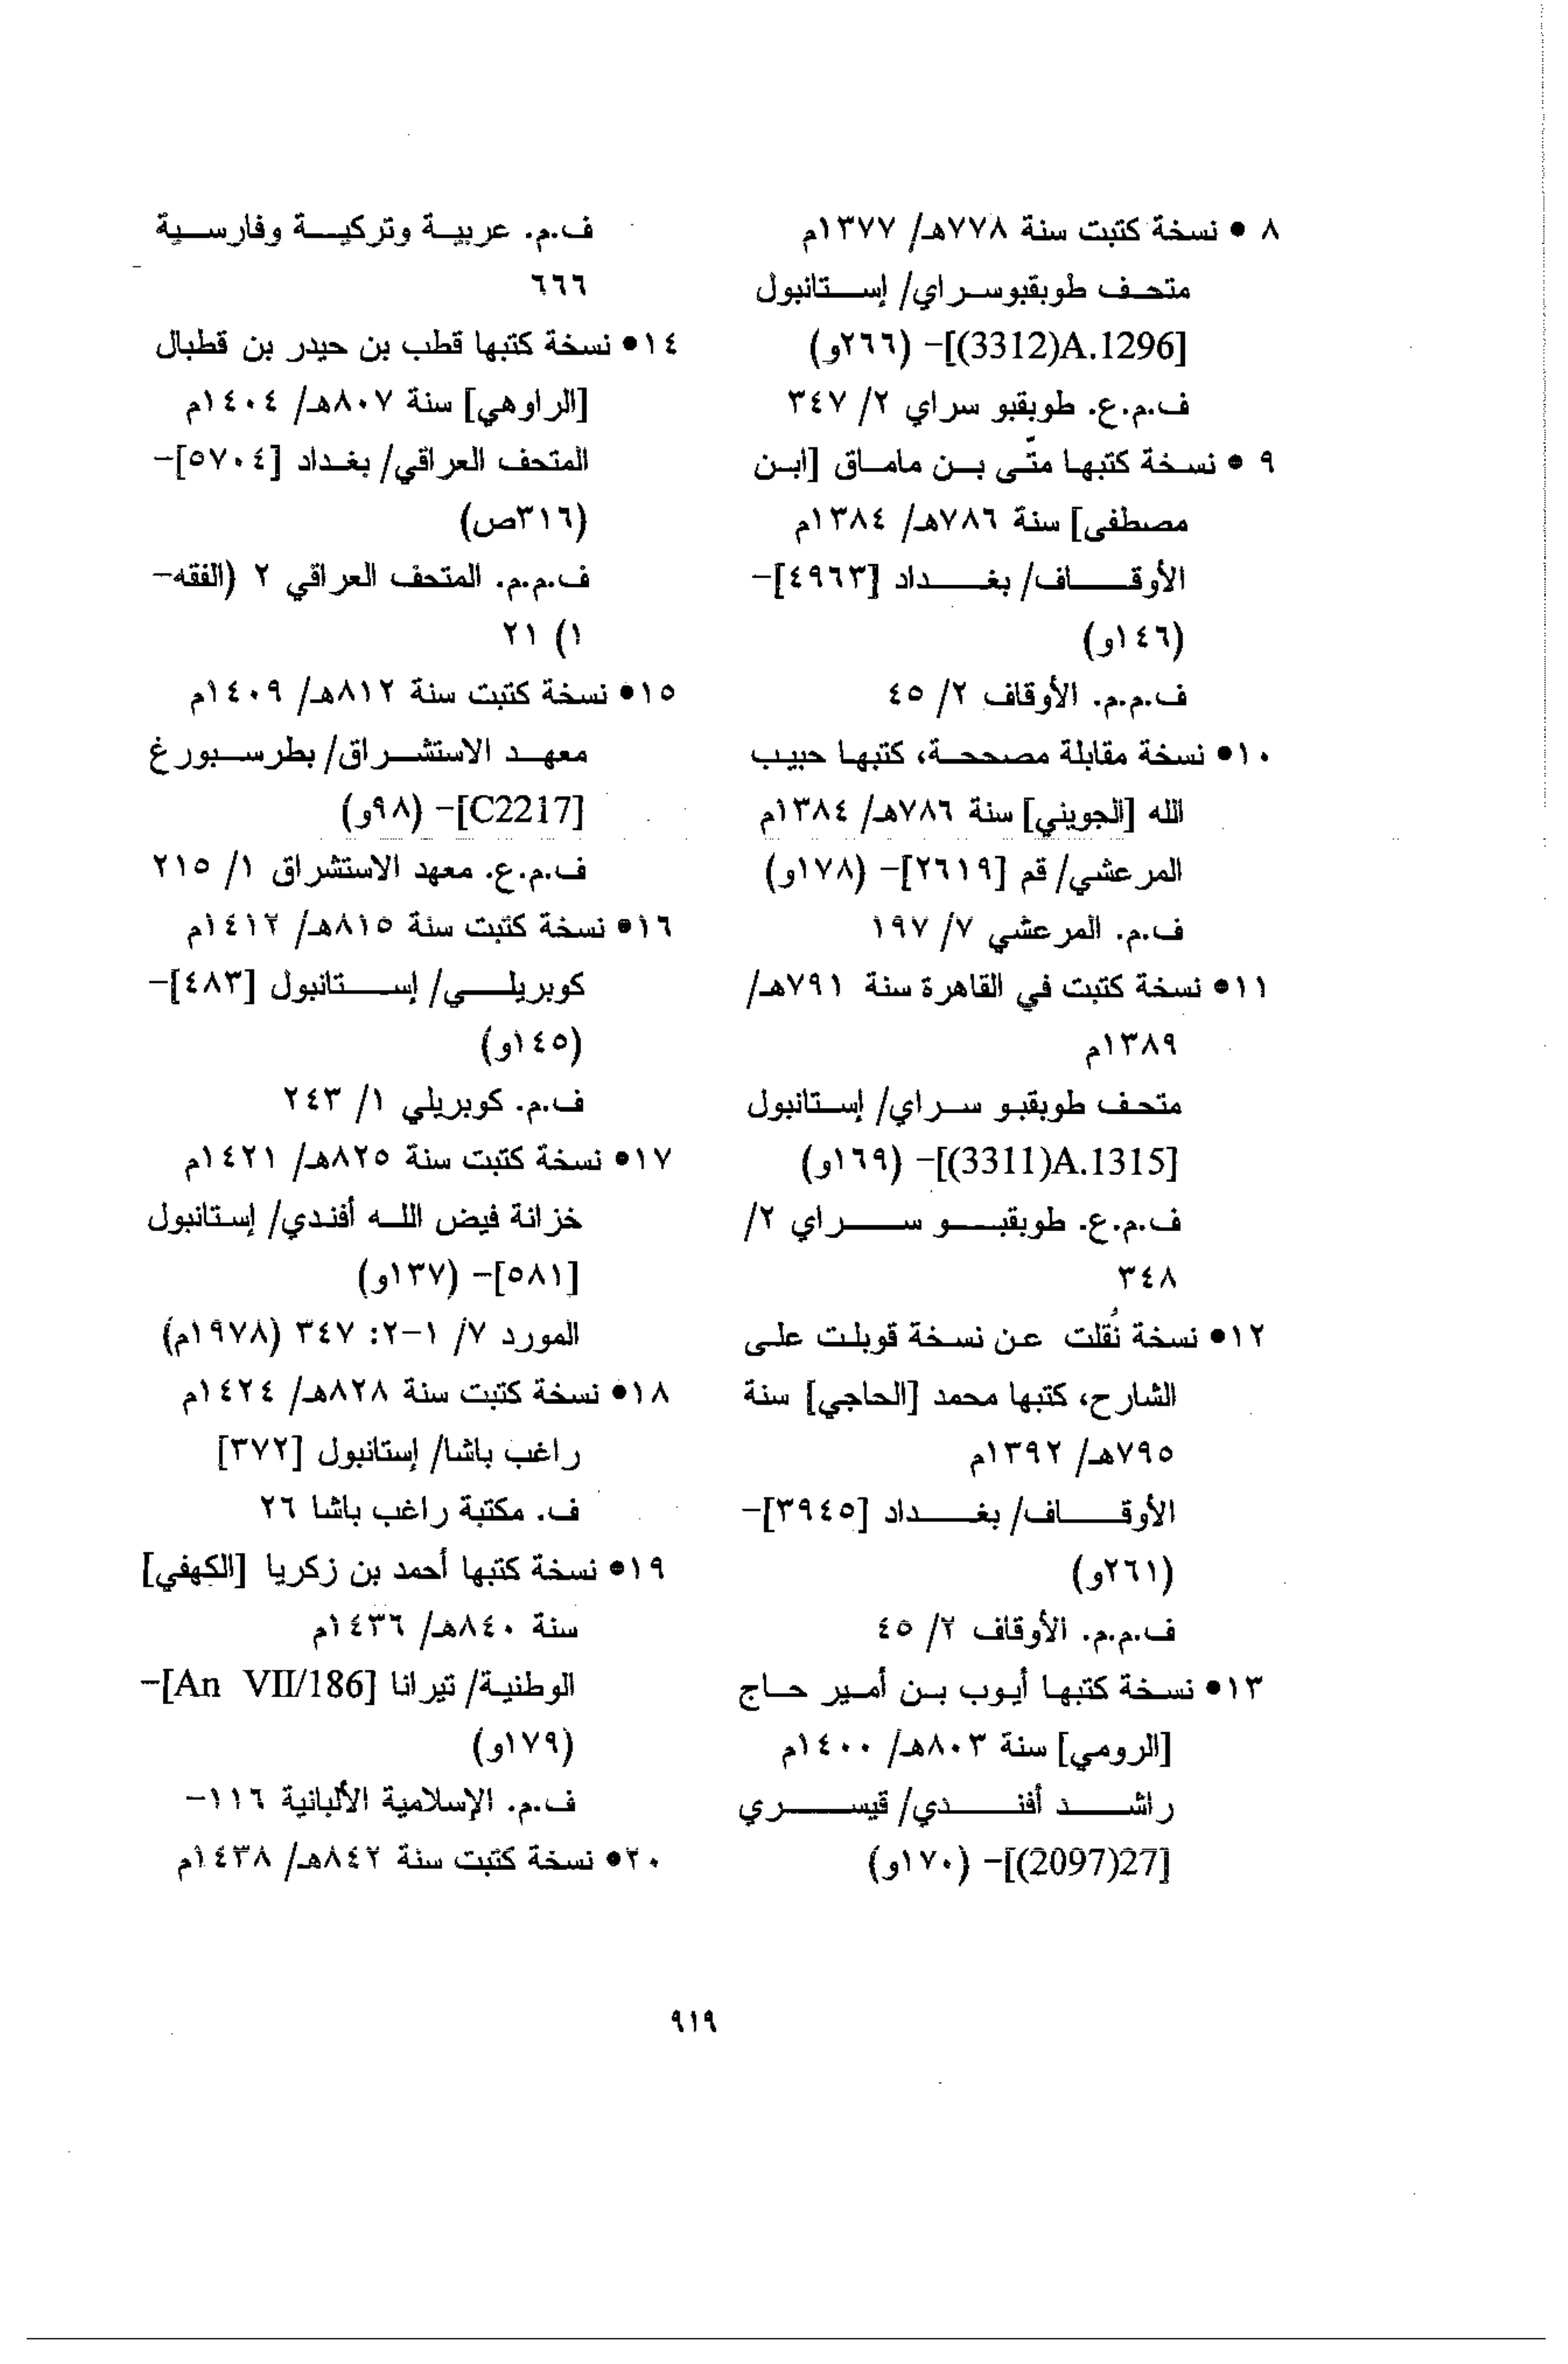 ٨ • نسخة كتبت سنة ٧٧٨هـ/ ١٣٧٧م
متحف طوبقبوسراي/ إستانبول
[A.1296(3312)]- (٢٦٦و)
ف.م.ع. طوبقبو سراي ٢/ ٣٤٧
٩ • نسخة كتبها متّى بن ماماق [ابن
مصطفى] سنة ٧٨٦هـ/ ١٣٨٤م
الأوقاف/ بغداد [٤٩٦٣]-
(١٤٦و)
ف.م.م. الأوقاف ٢/ ٤٥
١٠• نسخة مقابلة مصححة، كتبها حبيب
الله [الجويني] سنة ٧٨٦هـ/ ١٣٨٤م
المرعشي/ قم [٢٦١٩]- (١٧٨و)
ف.م. المرعشي ٧/ ١٩٧
١١• نسخة كتبت في القاهرة سنة ٧٩١هـ/
١٣٨٩م
متحف طوبقبو سراي/ إستانبول
[A.1315(3311)]- (١٦٩و)
ف.م.ع. طوبقبو سراي ٢/
٣٤٨
١٢• نسخة نُقلت عن نسخة قوبلت على
الشارح، كتبها محمد [الحاجي] سنة
٧٩٥هـ/ ١٣٩٢م
الأوقاف/ بغداد [٣٩٤٥]-
(٢٦١و)
ف.م.م. الأوقاف ٢/ ٤٥
١٣• نسخة كتبها أيوب بن أمير حاج
[الرومي] سنة ٨٠٣هـ/ ١٤٠٠م
راشد أفندي/ قيسري
[27(2097)]- (١٧٠و)
ف.م. عربية وتركية وفارسية
٦٦٦
١٤• نسخة كتبها قطب بن حيدر بن قطبال
[الراوهي] سنة ٨٠٧هـ/ ١٤٠٤م
المتحف العراقي/ بغداد [٥٧٠٤]-
(٣١٦ص)
ف.م.م. المتحف العراقي ٢ (الفقه-
١) ٢١
١٥• نسخة كتبت سنة ٨١٢هـ/ ١٤٠٩م
معهد الاستشراق/ بطرسبورغ
[C2217]- (٩٨و)
ف.م.ع. معهد الاستشراق ١/ ٢١٥
١٦• نسخة كتبت سنة ٨١٥هـ/ ١٤١٢م
كوبريلي/ إستانبول [٤٨٣]-
(١٤٥و)
ف.م. كوبريلي ١/ ٢٤٣
١٧• نسخة كتبت سنة ٨٢٥هـ/ ١٤٢١م
خزانة فيض الله أفندي/ إستانبول
[٥٨١]- (١٣٧و)
المورد ٧/ ١-٢: ٣٤٧ (١٩٧٨م)
١٨• نسخة كتبت سنة ٨٢٨هـ/ ١٤٢٤م
راغب باشا/ إستانبول [٣٧٢]
ف. مكتبة راغب باشا ٢٦
١٩• نسخة كتبها أحمد بن زكريا [الكهفي]
سنة ٨٤٠هـ/ ١٤٣٦م
الوطنية/ تيرانا [An VII/186]-
(١٧٩و)
ف.م. الإسلامية الألبانية ١١٦-
٢٠• نسخة كتبت سنة ٨٤٢هـ/ ١٤٣٨م
٩١٩